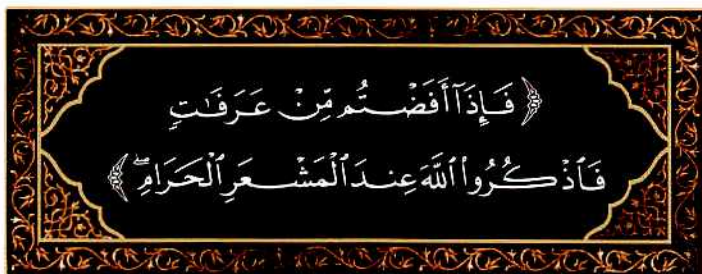 ﴿ فَإِذَآ أَفَضْتُم مِّنْ عَرَفَـٰتٍ
فَٱذْكُرُوا۟ ٱللَّهَ عِندَ ٱلْمَشْعَرِ ٱلْحَرَامِ ۖ ﴾